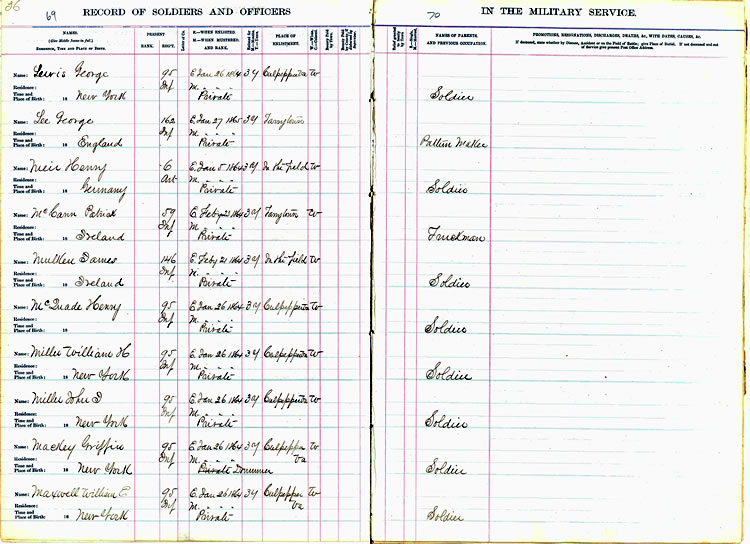 36
69
RECORD OF SOLDIERS AND OFFICERS
70
IN THE MILITARY SERVICE.
NAMES.
(Give Middle Name in full.)
RESIDENCE, TIME AND PLACE OF BIRTH.
PRESENT
RANK. REGT.
E.—WHEN ENLISTED.
M.—WHEN MUSTERED.
AND RANK.
PLACE OF
ENLISTMENT.
NAMES OF PARENTS,
AND PREVIOUS OCCUPATION.
PROMOTIONS, RESIGNATIONS, DISCHARGES, DEATHS, &c., WITH DATES, CAUSES, &c.
If deceased, state whether by Disease, Accident or on the Field of Battle; give Place of Burial. If not deceased and out
of Service give present Post Office Address.
Name: Lewis George 95 E. Jan 26 1864 3 y Culpepper Va W
Residence: Inf M. " " "
Time and
Place of Birth: 18 New York Private Soldier
Name: Lee George 162 E. Jan 27 1865 3 y Tarrytown
Residence: Inf M. " " "
Time and
Place of Birth: 18 England Private Pattern Maker
Name: Meir Henry 6 E. Jan 5 1864 3 y In the field W
Residence: Art M. " " "
Time and
Place of Birth: 18 Germany Private Soldier
Name: McCann Patrick 59 E. Feby 1864 3 y Tarrytown W
Residence: Inf M. " " "
Time and
Place of Birth: 18 Ireland Private Truckman
Name: Mulken James 146 E. Feby 21 1864 3 y In the field W
Residence: Inf M. " " "
Time and
Place of Birth: 18 Ireland Private Soldier
Name: McQuade Henry 95 E. Jan 26 1864 3 y Culpepper Va W
Residence: Inf M. " " "
Time and
Place of Birth: 18 Private Soldier
Name: Miller William H 95 E. Jan 26 1864 3 y Culpepper Va W
Residence: Inf M. " " "
Time and
Place of Birth: 18 New York Private Soldier
Name: Miller John 95 E. Jan 26 1864 3 y Culpepper Va W
Residence: Inf M. " " "
Time and
Place of Birth: 18 New York Private Soldier
Name: Mackey Griffin 95 E. Jan 26 1864 3 y Culpepper W
Residence: Inf M. " " " Va
Time and
Place of Birth: 18 New York Private Drummer Soldier
Name: Maxwell William E 95 E. Jan 26 1864 3 y Culpepper W
Residence: Inf M. " " " Va
Time and
Place of Birth: 18 New York Private Soldier